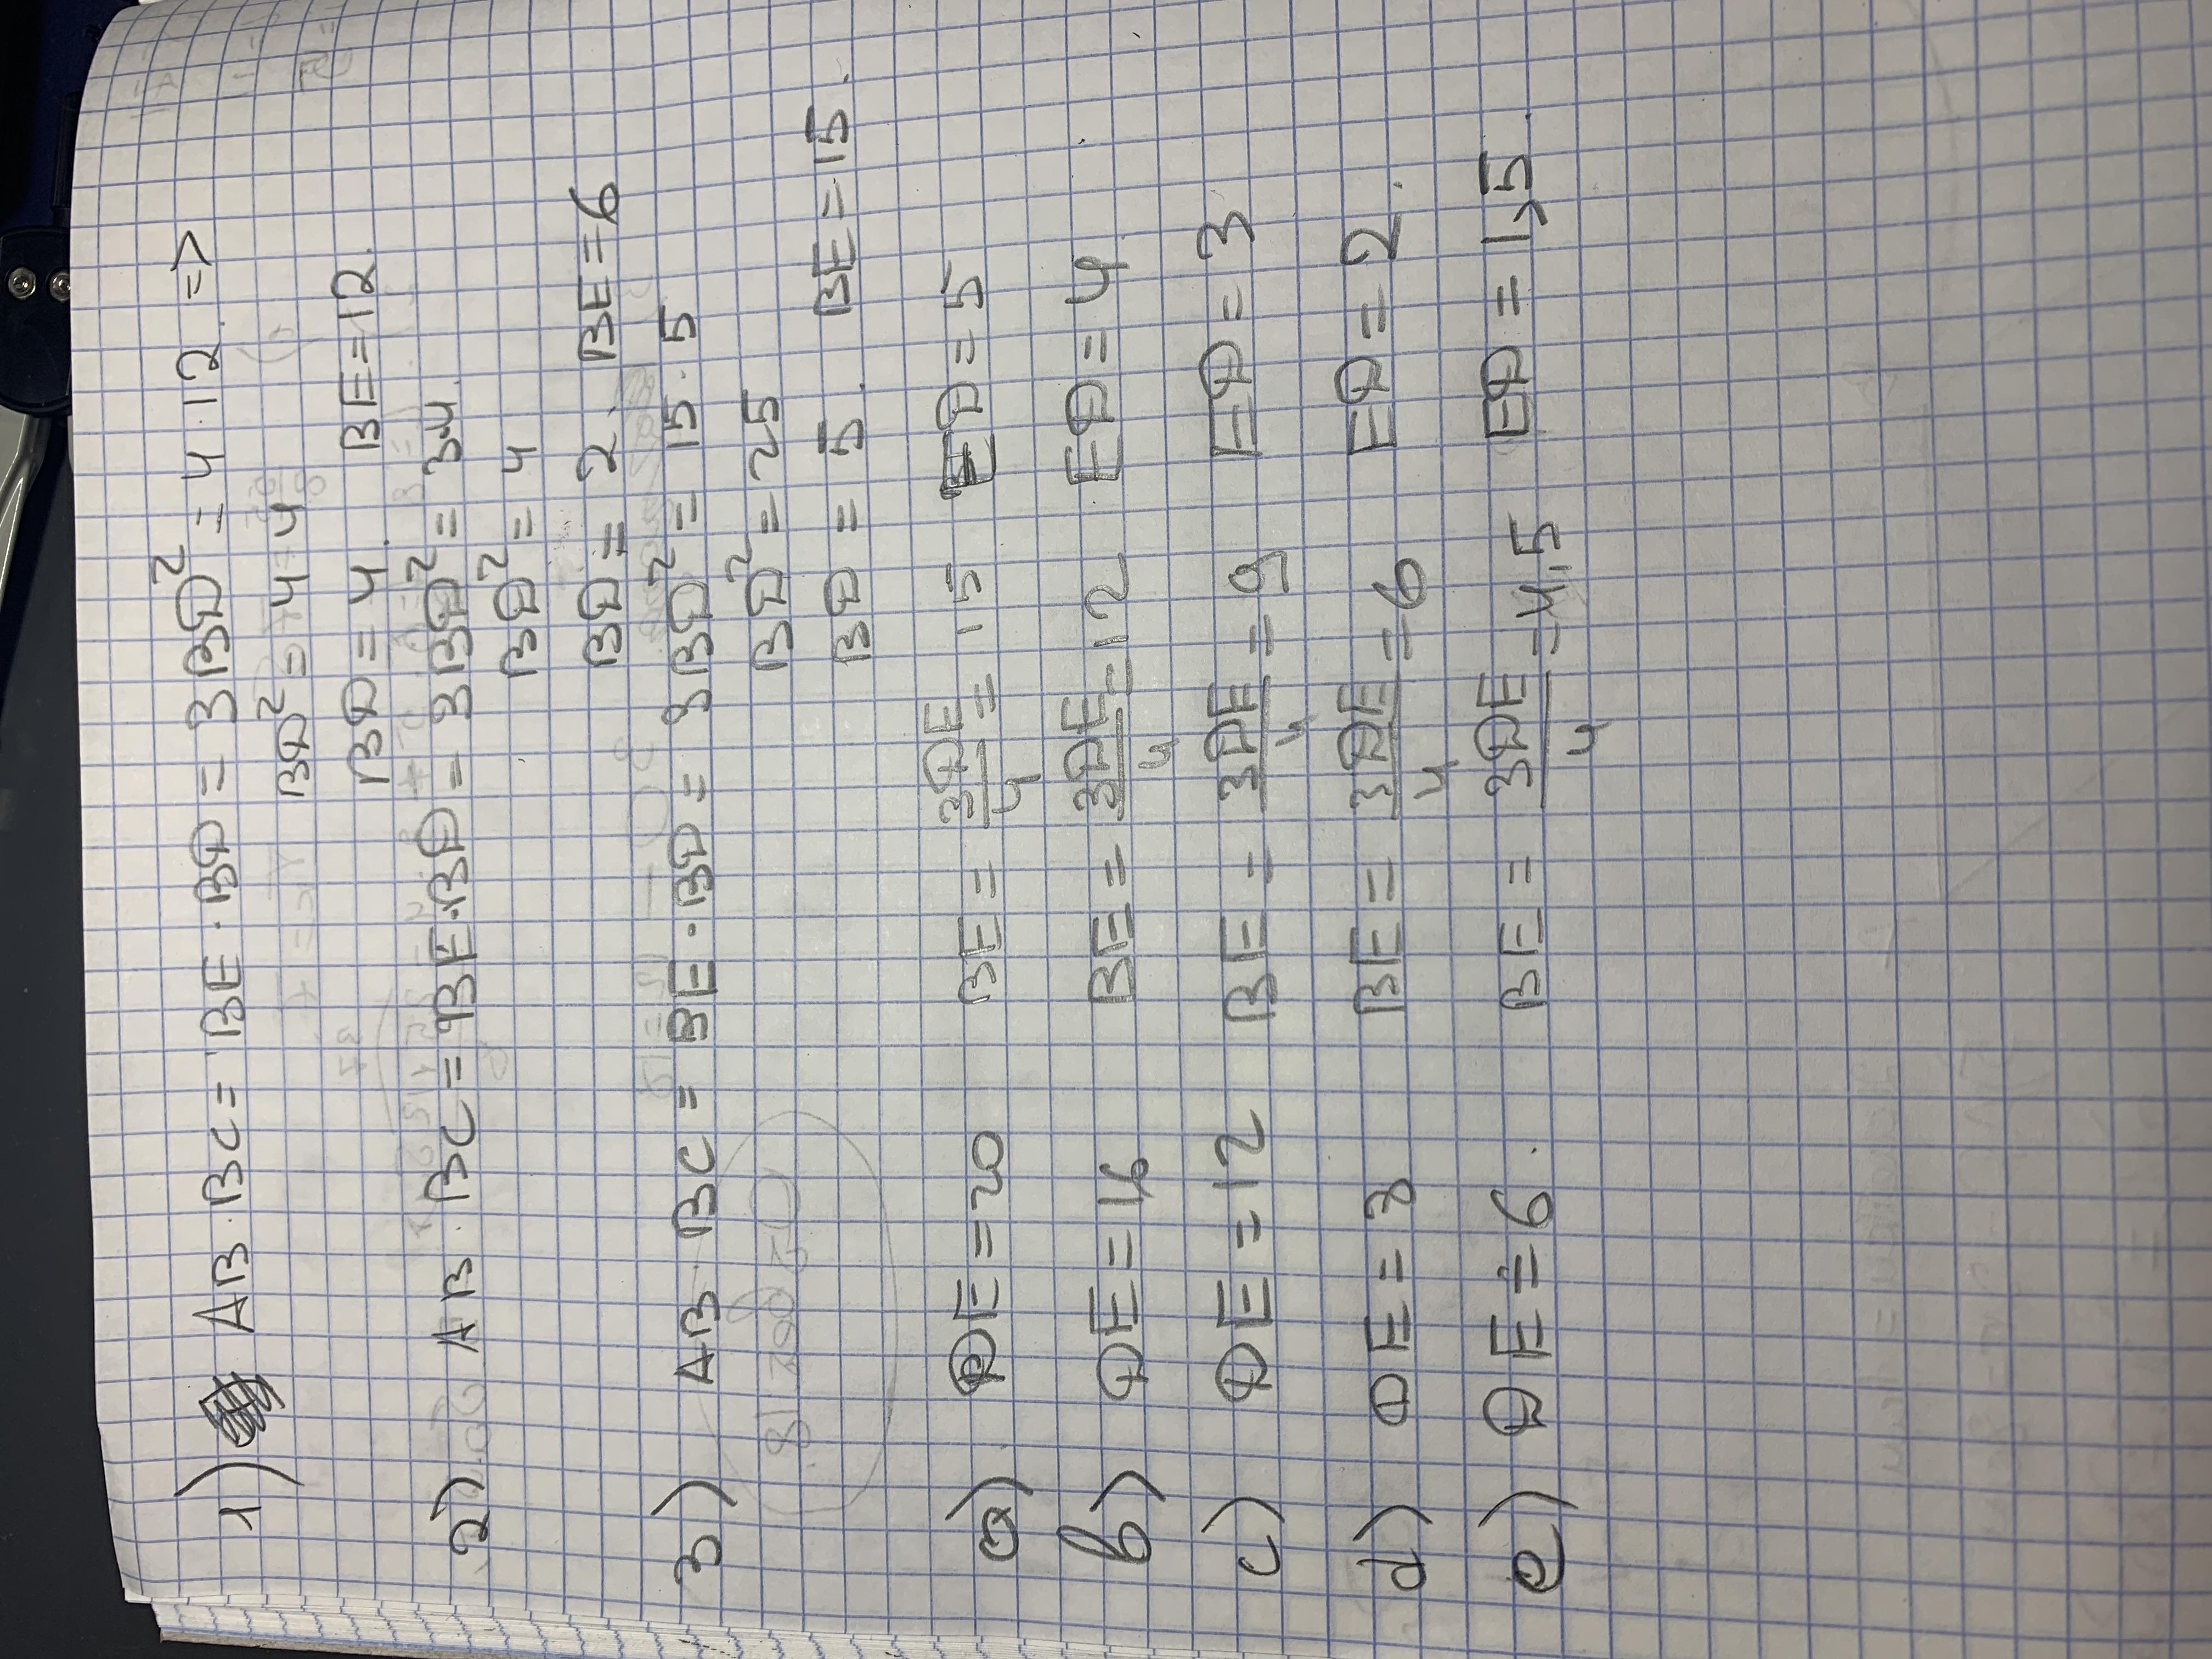 1) AB · BC = BE · BD = 3BD² = 4 · 12. =>
BD² = 4 · 4
BD = 4. BE = 12.
2) AB · BC = BE · BD = 3BD² = 3·4.
BD² = 4
BD = 2. BE = 6
3) AB · BC = BE · BD = 3BD² = 15 · 5
BD² = 25
BD = 5. BE = 15.
a) DE = 20 BE = 3DE/4 = 15 ED = 5
b) DE = 16 BE = 3DE/4 = 12 ED = 4.
c) DE = 12 BE = 3DE/4 = 9 ED = 3
d) DE = 8 BE = 3DE/4 = 6 ED = 2.
e) DE = 6. BE = 3DE/4 = 4,5 ED = 1,5.